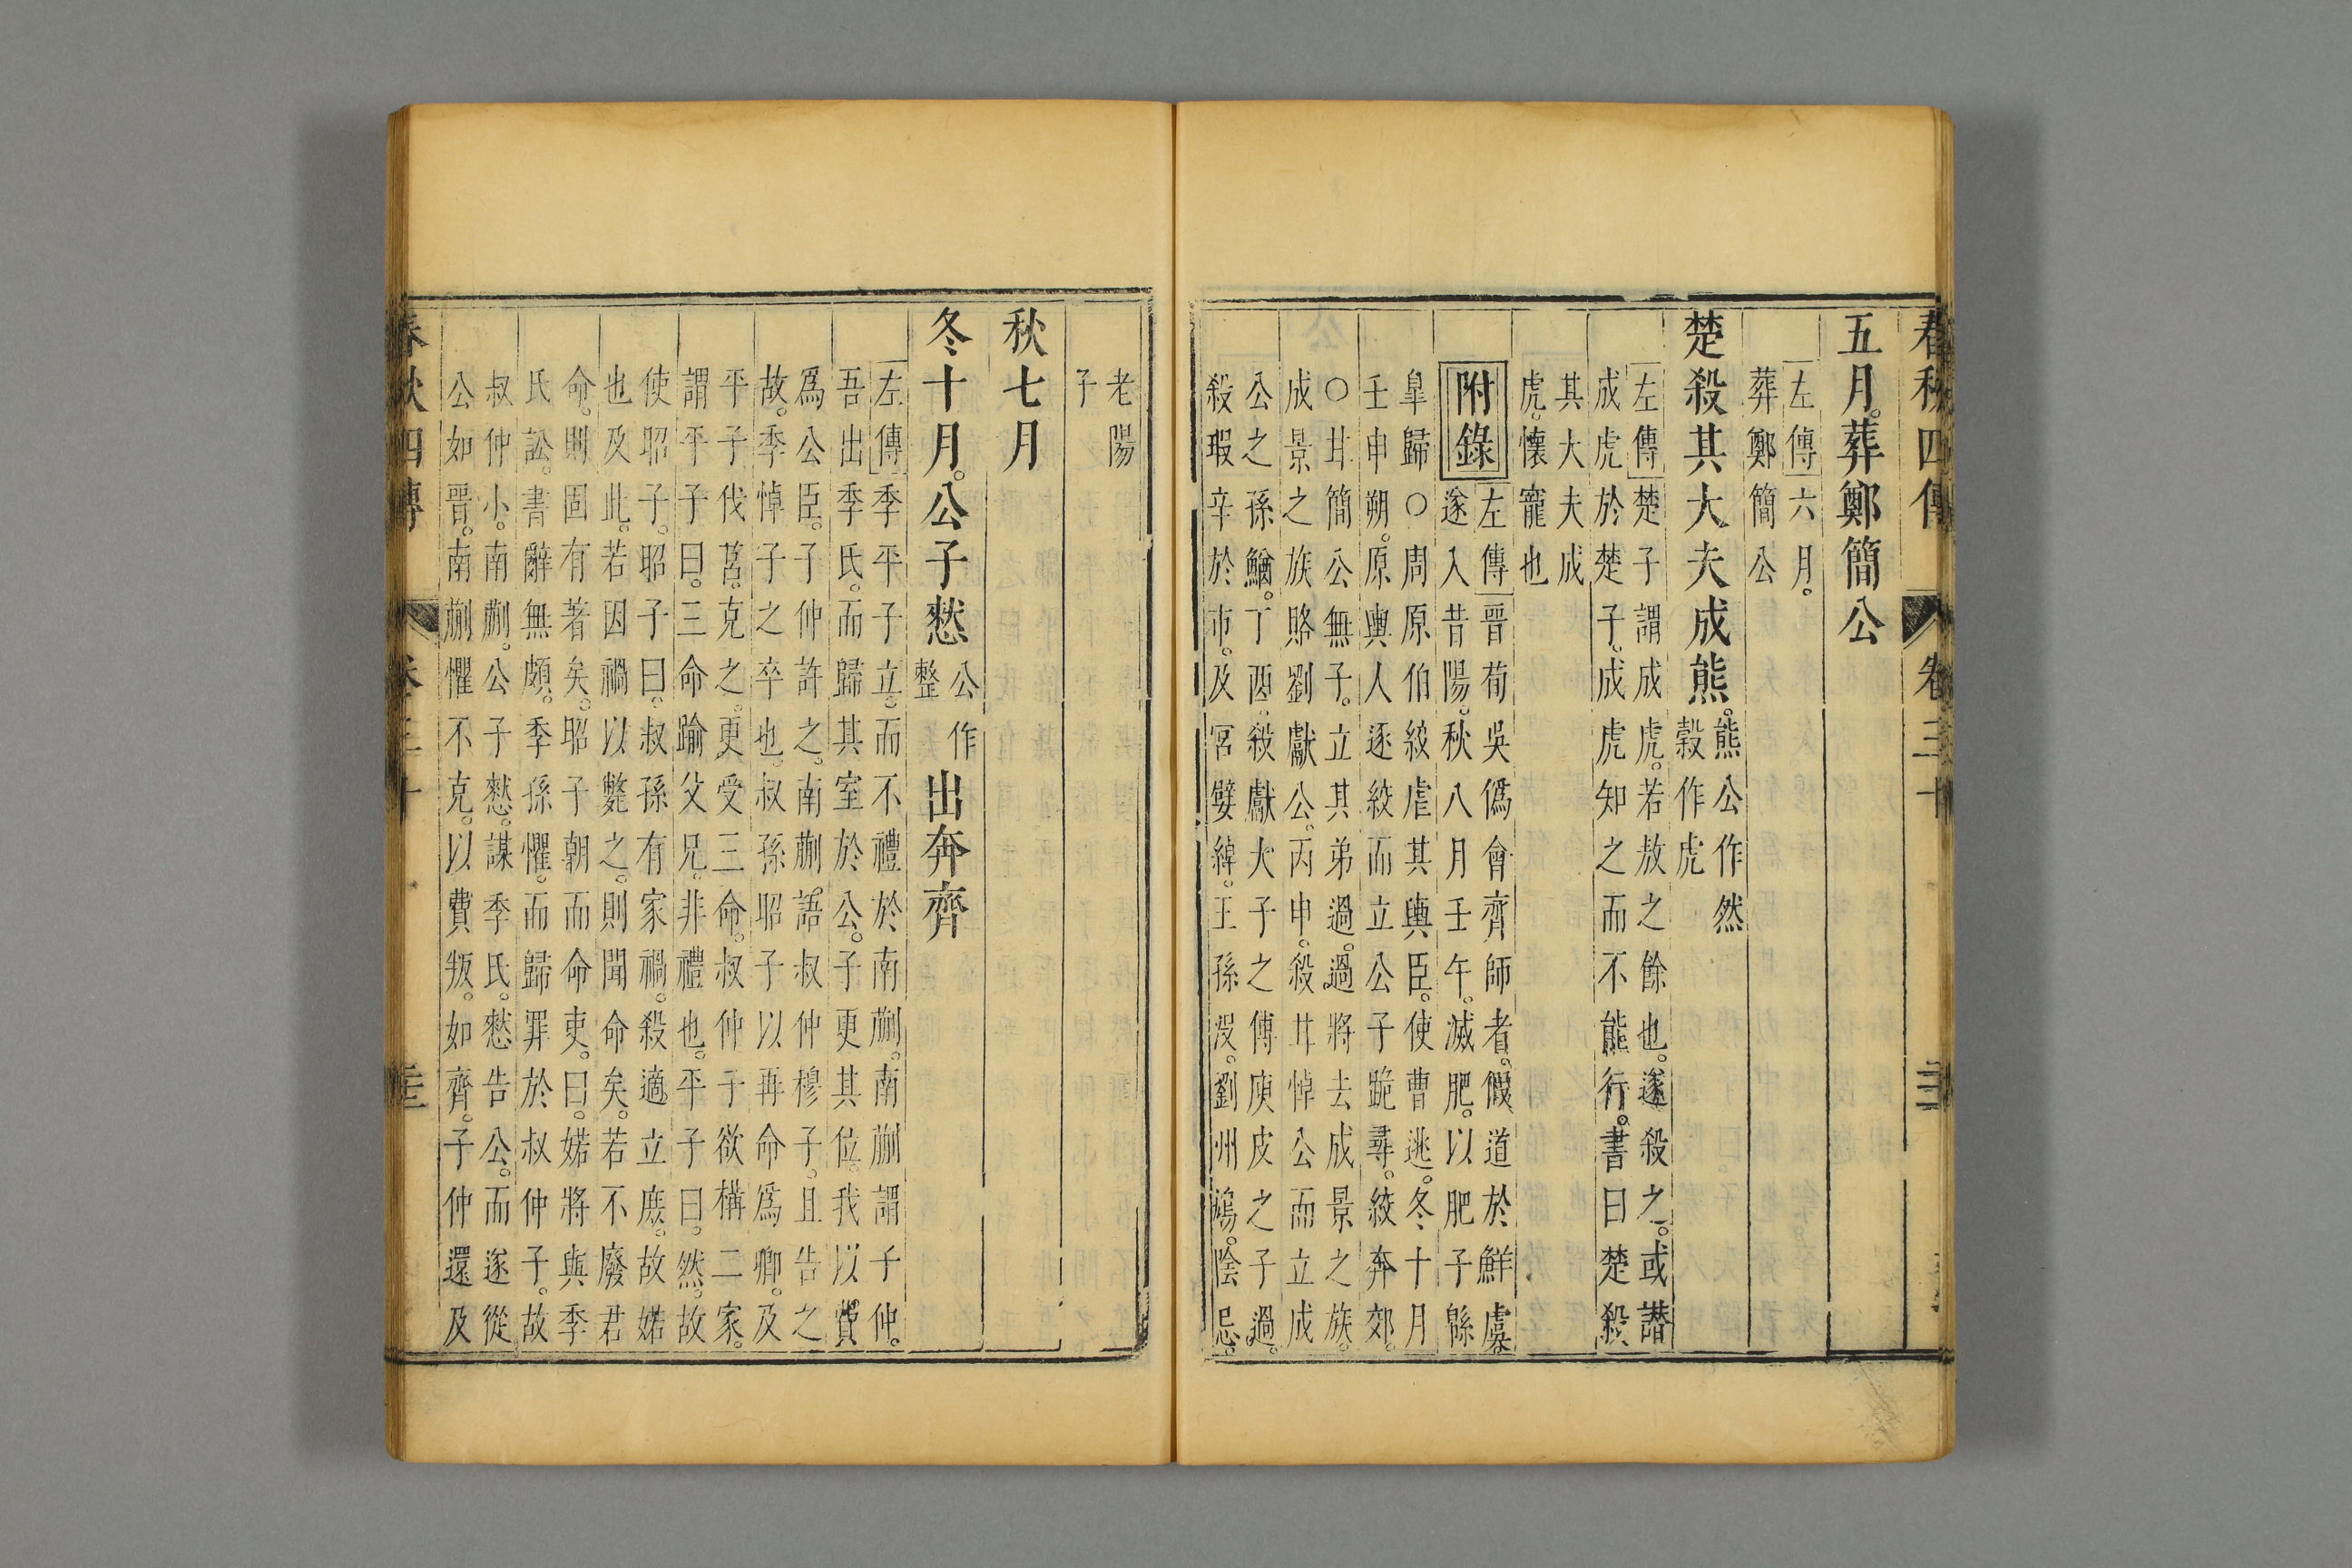 春秋四傳 卷三十
五月。葬鄭簡公
左傳六月。
葬鄭簡公
楚殺其大夫成熊。
熊公作然
穀作虎
左傳楚子謂成虎。若敖之餘也。遂殺之。或譖
成虎於楚子。成虎知之而不能行。書曰楚殺
其大夫成
虎。懷寵也
附錄
左傳晉荀吳僞會齊師者。假道於鮮虞。
遂入昔陽。秋八月壬午。滅肥。以肥子緜
臯歸〇周原伯絞虐其輿臣。使曹逃。冬十月
壬申朔。原輿人逐絞而立公子跪尋。絞奔郊。
〇甘簡公無子。立其弟過。過將去成景之族。
成景之族賂劉獻公。丙申。殺甘悼公而立成
公之孫鰌。丁酉。殺獻大子之傅庾皮之子過。
殺瑕辛於市。及宮嬖綽。王孫沒。劉州鳩。陰忌。
老陽
子
秋七月
冬十月。公子憖
公作
整
出奔齊
左傳季平子立。而不禮於南蒯。南蒯謂子仲。
吾出季氏。而歸其室於公。子更其位。我以費
爲公臣。子仲許之。南蒯語叔仲穆子。且告之
故。季悼子之卒也。叔孫昭子以再命爲卿。及
平子伐莒。克之。更受三命。叔仲子欲構二家。
謂平子曰。三命踰父兄。非禮也。平子曰。然。故
使昭子。昭子曰。叔孫有家禍。殺適立庶。故婼
也及此。若因禍以斃之。則聞命矣。若不廢君
命。則固有著矣。昭子朝而命吏。曰。婼將與季
氏訟。書辭無頗。季孫懼。而歸罪於叔仲子。故
叔仲小。南蒯。公子憖。謀季氏。憖告公。而遂從
公如晉。南蒯懼不克。以費叛。如齊。子仲還及
春秋四傳 卷三十